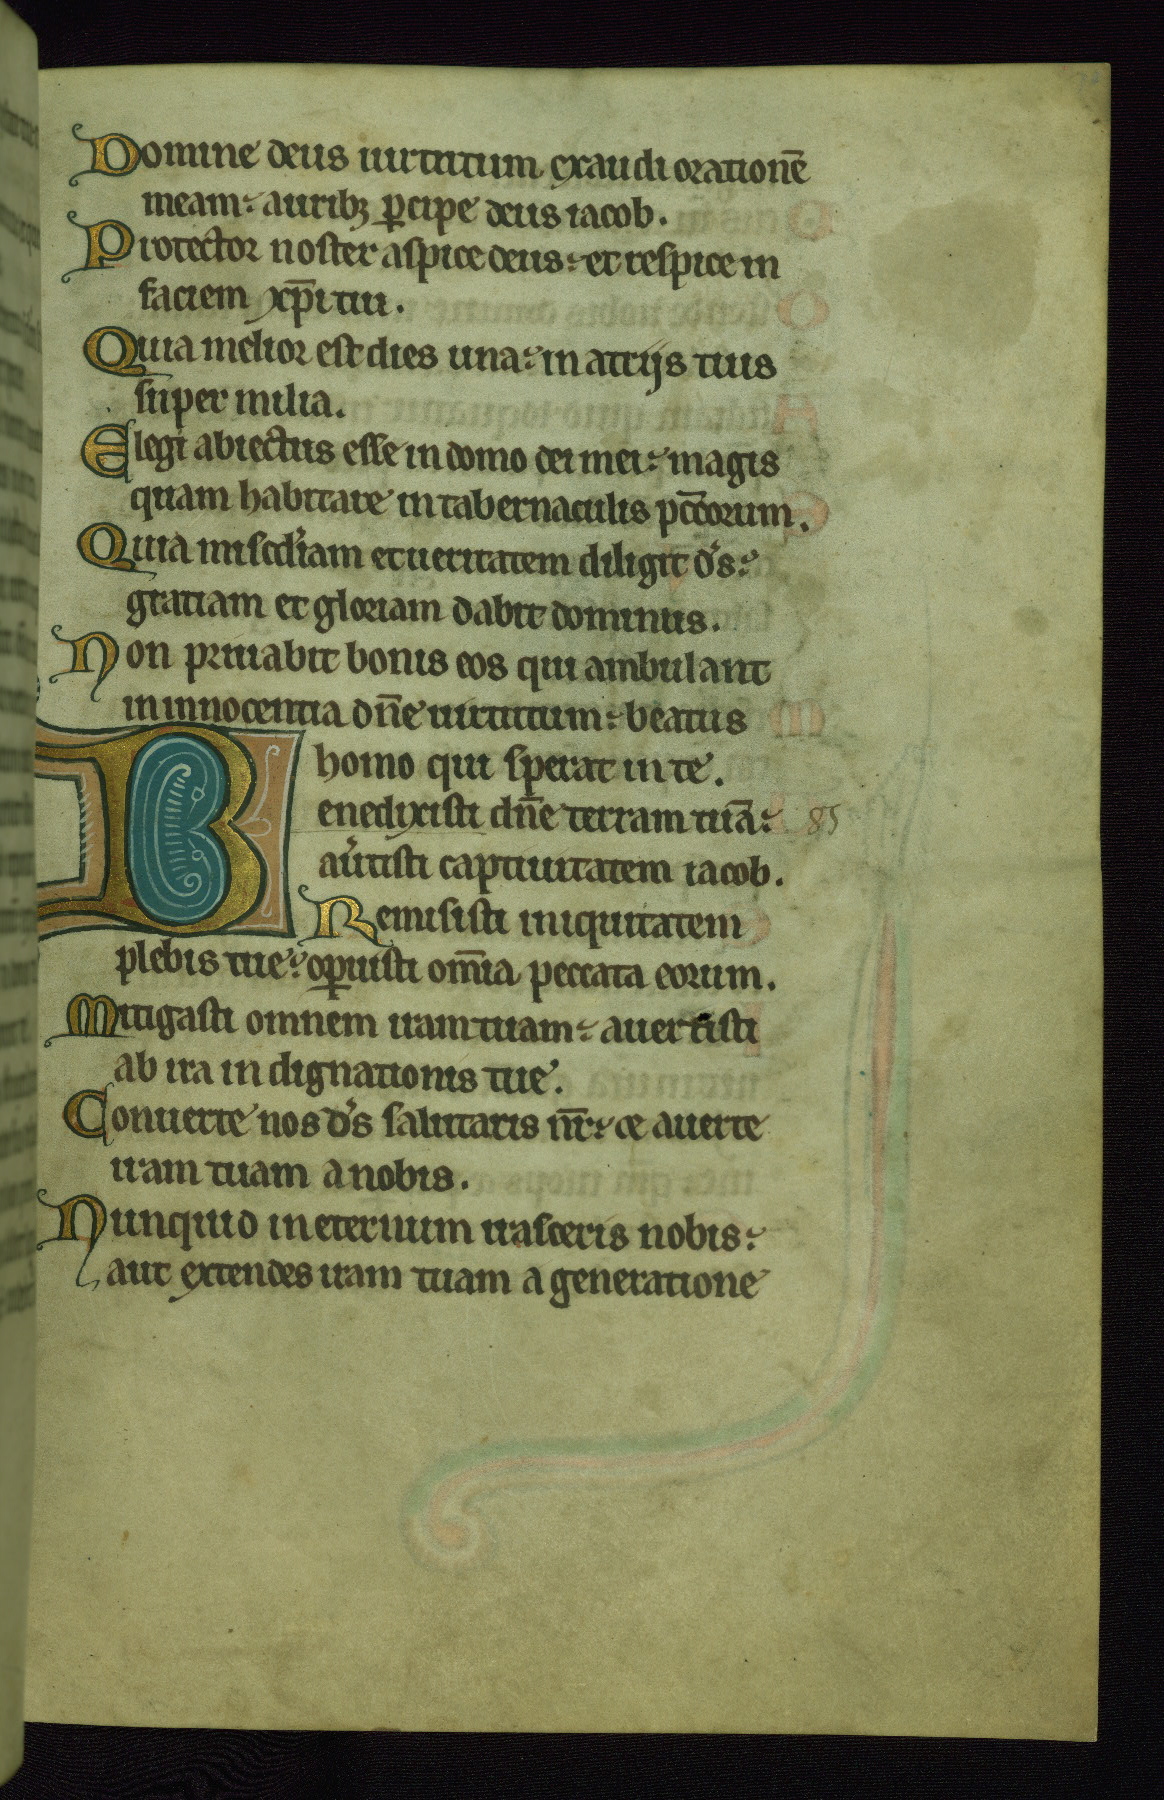 Domine deus uirtutum exaudi orationē
meam: auribꝫ ꝑcipe deus iacob.
Protector noster aspice deus: et respice in
faciem xp̄i tui.
Quia melior est dies una: in atrijs tuis
super milia.
Elegi abiectus esse in domo dei mei: magis
quam habitare in tabernaculis pc̄corum.
Quia misc̄diam et ueritatem diligit d̄s:
gratiam et gloriam dabit dominus.
Non priuabit bonis eos qui ambulant
in innocentia dn̄e uirtutum: beatus
homo qui sperat in te.
Benedixisti dn̄e terram tuā: 85
au̓tisti captiuitatem iacob.
Remisisti iniquitatem
plebis tue: oꝑuisti om̄ia peccata eorum.
Mitigasti omnem iram tuam: auertisti
ab ira indignationis tue.
Conuerte nos d̄s salutaris nr̄: et auerte
iram tuam a nobis.
Nunquid in eternum irasceris nobis:
aut extendes iram tuam a generatione